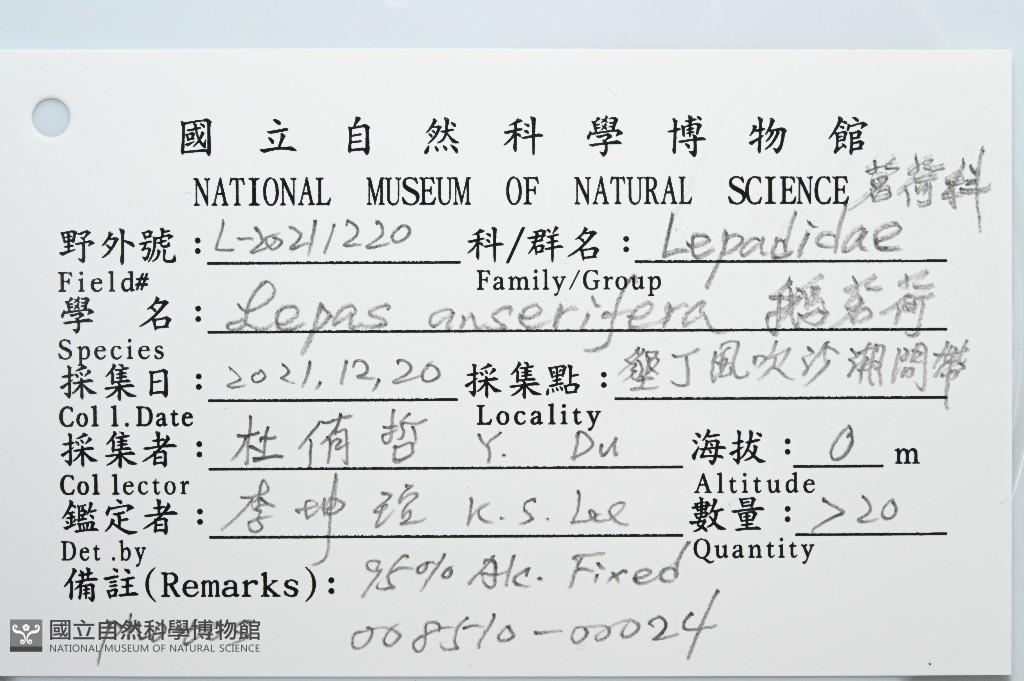 國立自然科學博物館
NATIONAL MUSEUM OF NATURAL SCIENCE 茗荷科
野外號：L-20211220 科/群名：Lepadidae
Field# Family/Group
學 名：Lepas anserifera 鵝茗荷
Species
採集日：2021.12.20 採集點：墾丁風吹沙潮間帶
Coll.Date Locality
採集者：杜侑哲 Y. Du 海拔：0 m
Collector Altitude
鑑定者：李坤瑄 K.S. Lee 數量：>20
Det.by Quantity
備註(Remarks)：95% Alc. Fixed
008510-00024
國立自然科學博物館
NATIONAL MUSEUM OF NATURAL SCIENCE